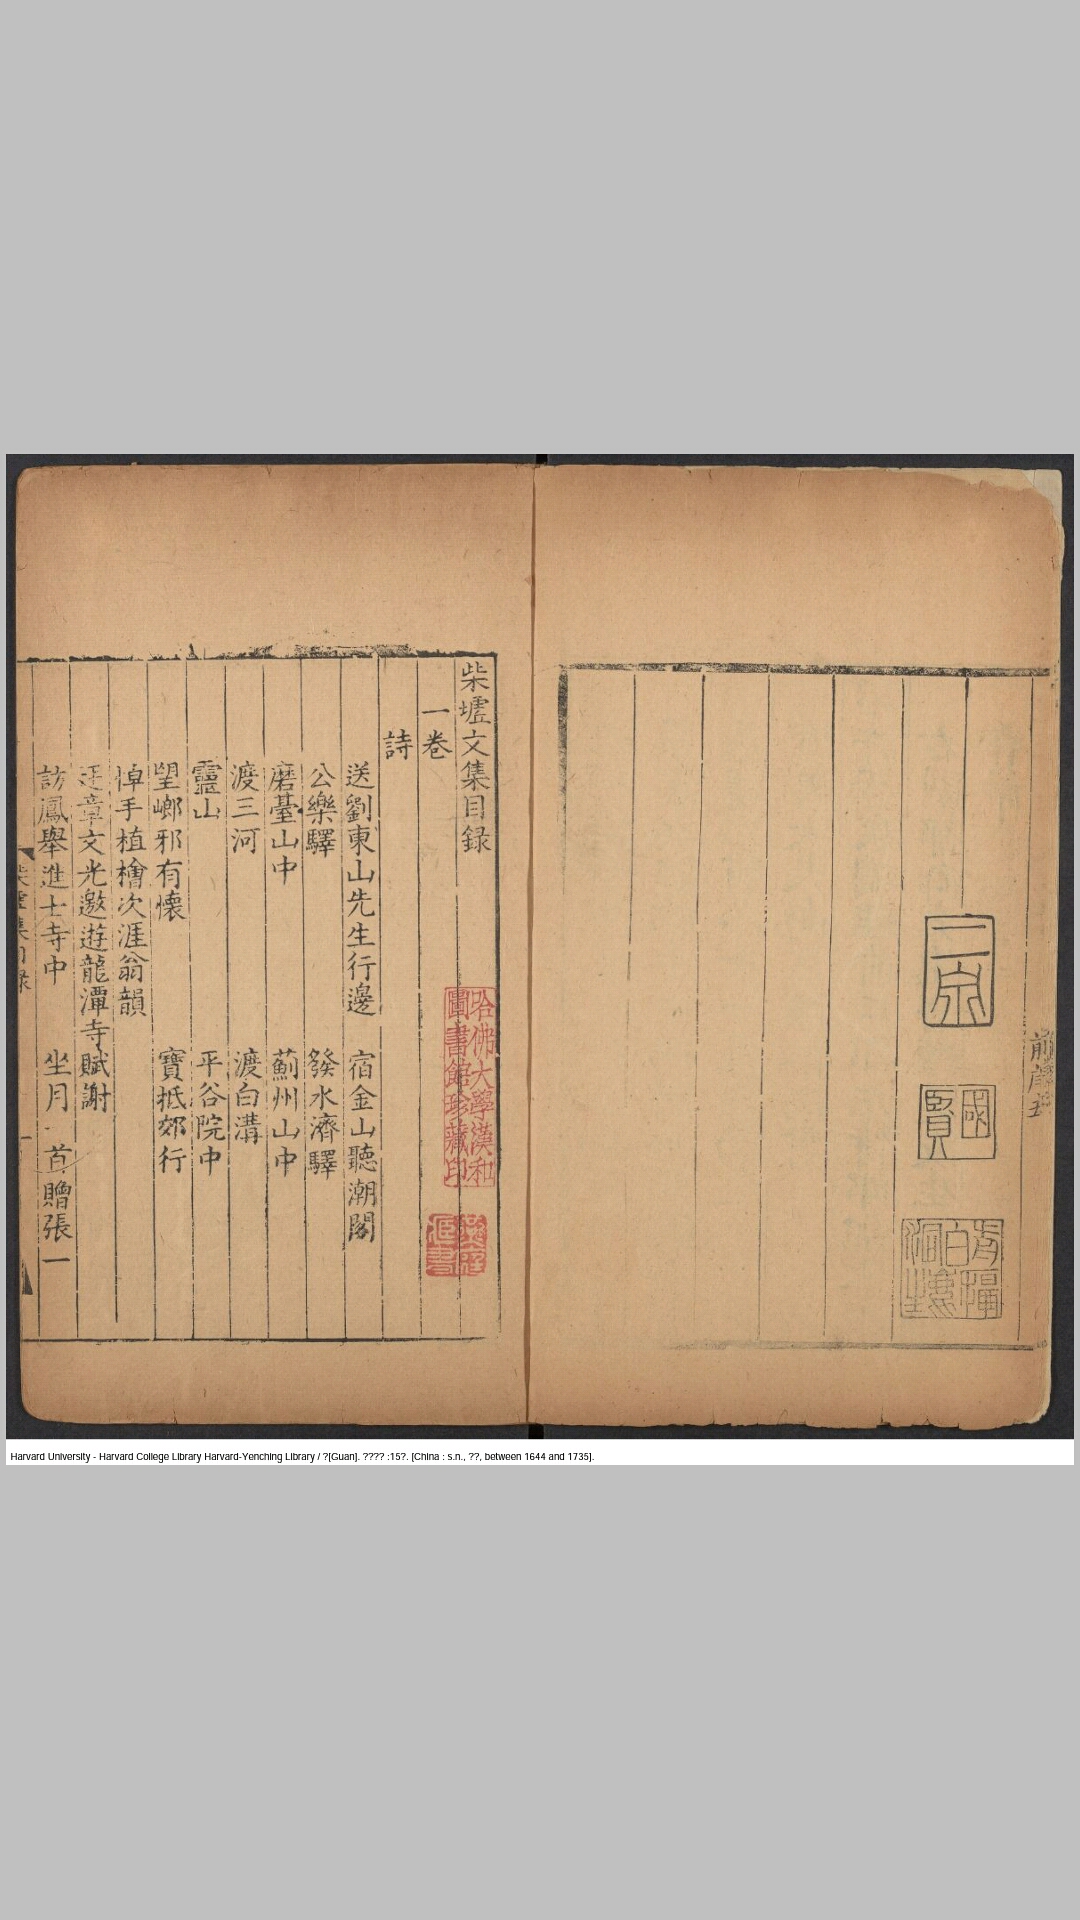 二泉
國賢
柴墟文集目録
一卷
詩
送劉東山先生行邊 宿金山聽潮閣
公樂驛 發水濟驛
磨臺山中 薊州山中
渡三河 渡白溝
靈山 平谷院中
望鄉邪有懷 寶抵郊行
悼手植檜次涯翁韻
章文光邀遊龍潭寺賦謝
訪鳳舉進士寺中 坐月 首贈張一
哈佛大學漢和
圖書館珍藏印
Harvard University - Harvard College Library Harvard-Yenching Library / ?[Guan]. ???? :15?. [China : s.n., ??, between 1644 and 1735].